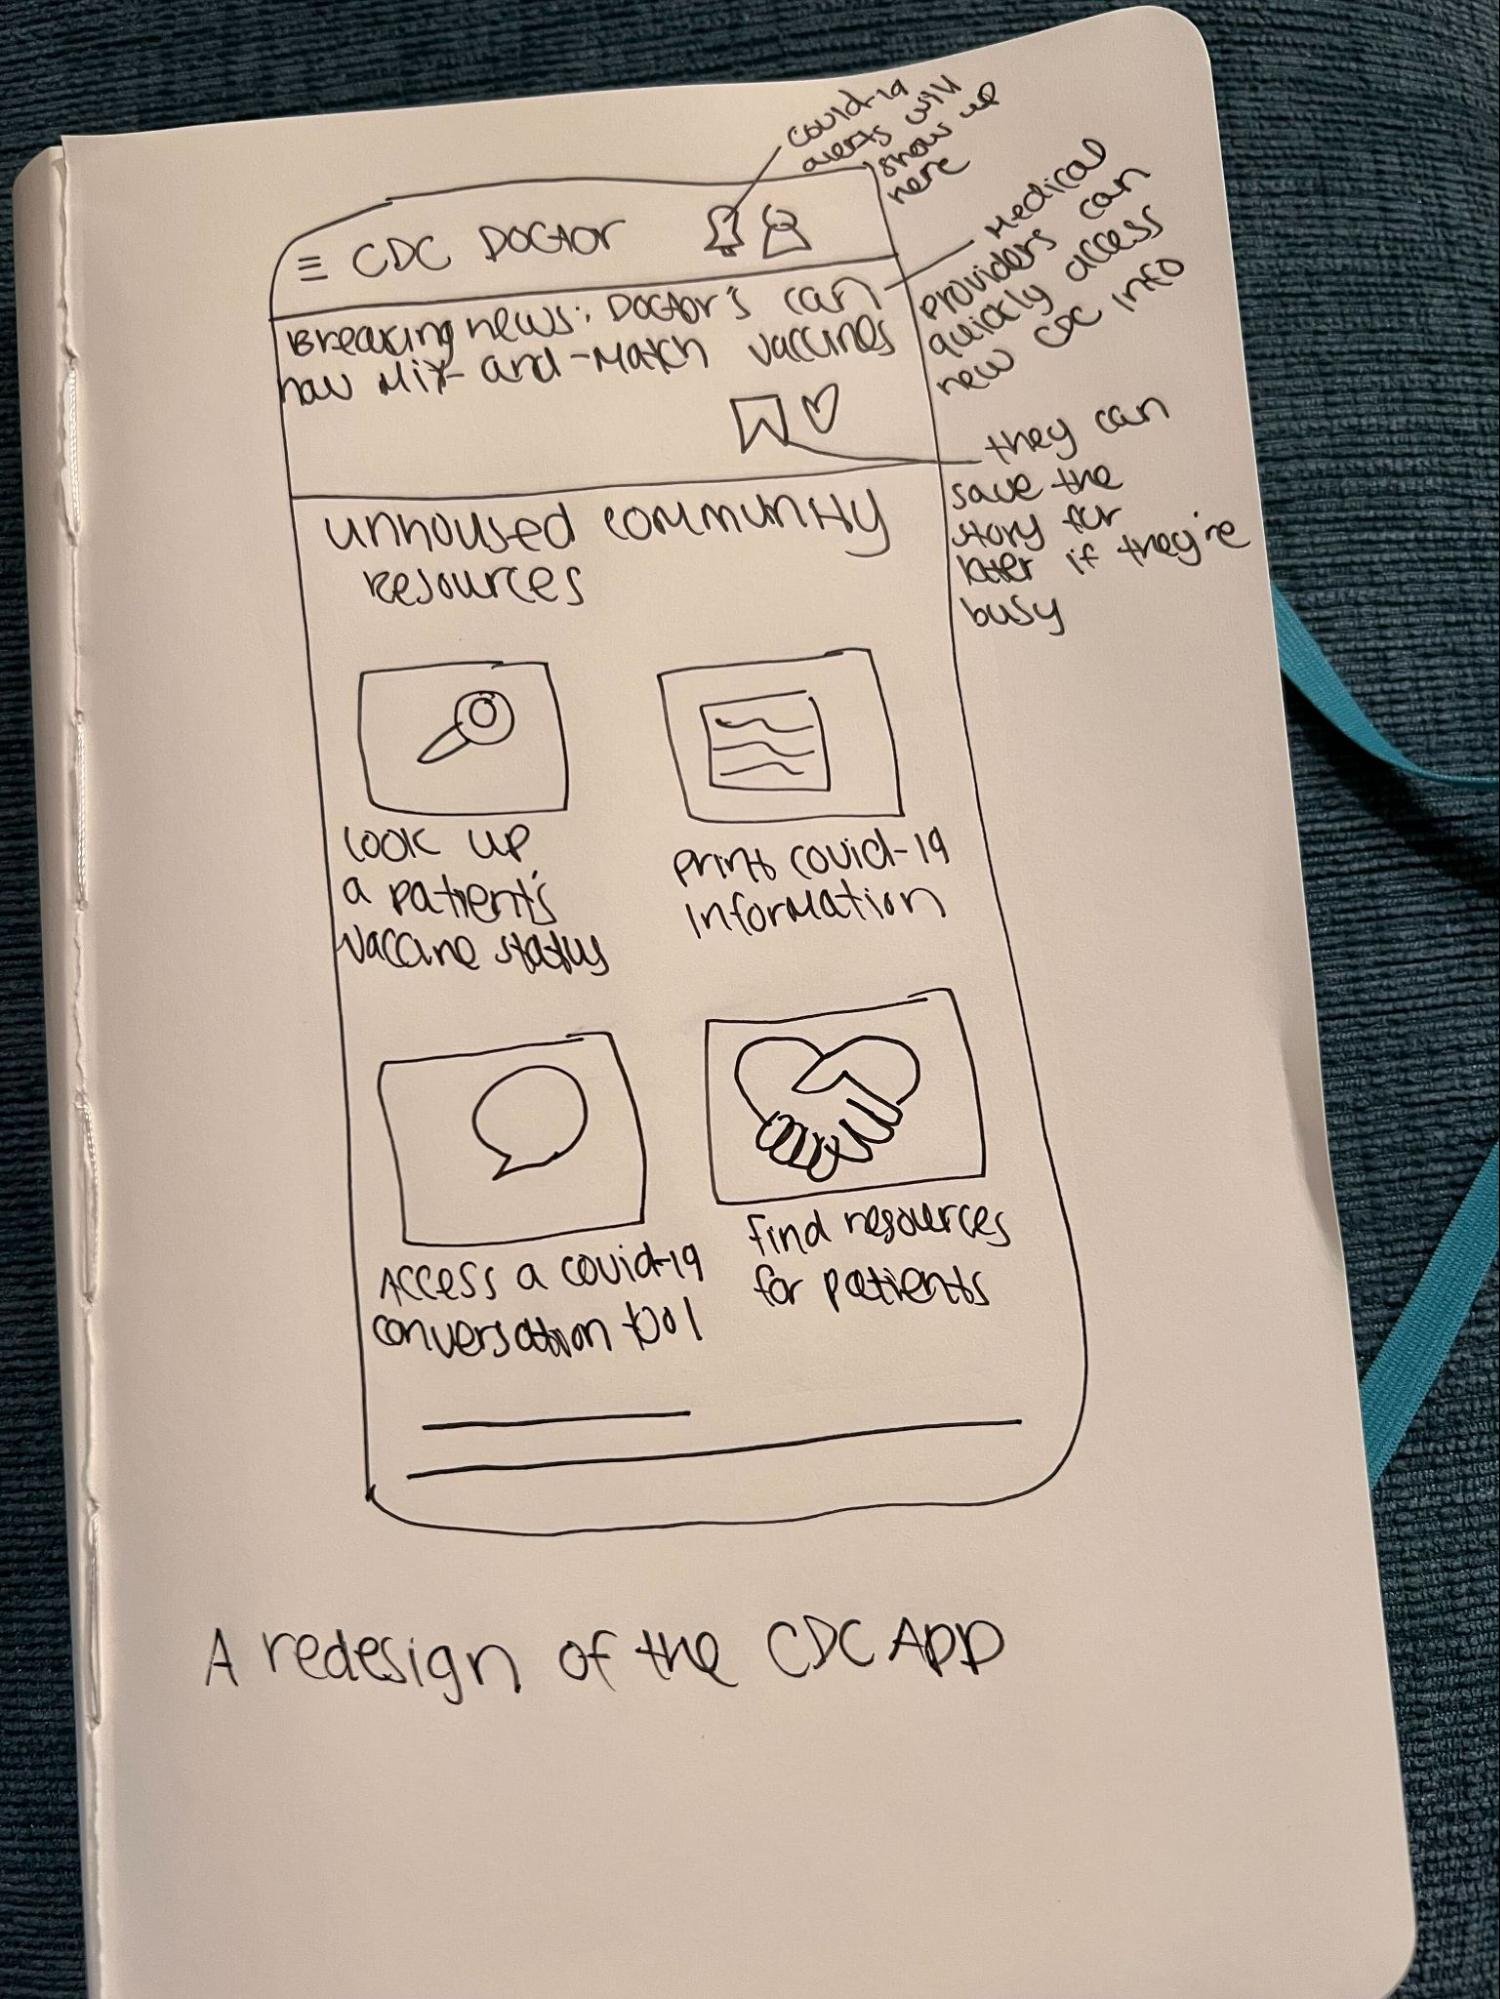 covid-19
alerts will
show up
here
CDC DOCTOR
Medical
providers can
quickly access
new CDC info
Breaking news: Doctor's can
now Mix-and-Match vaccines
they can
save the
story for
later if they're
busy
unhoused community
resources
Look up
a patient's
vaccine status
print covid-19
information
Access a covid-19
conversation tool
find resources
for patients
A redesign of the CDC App